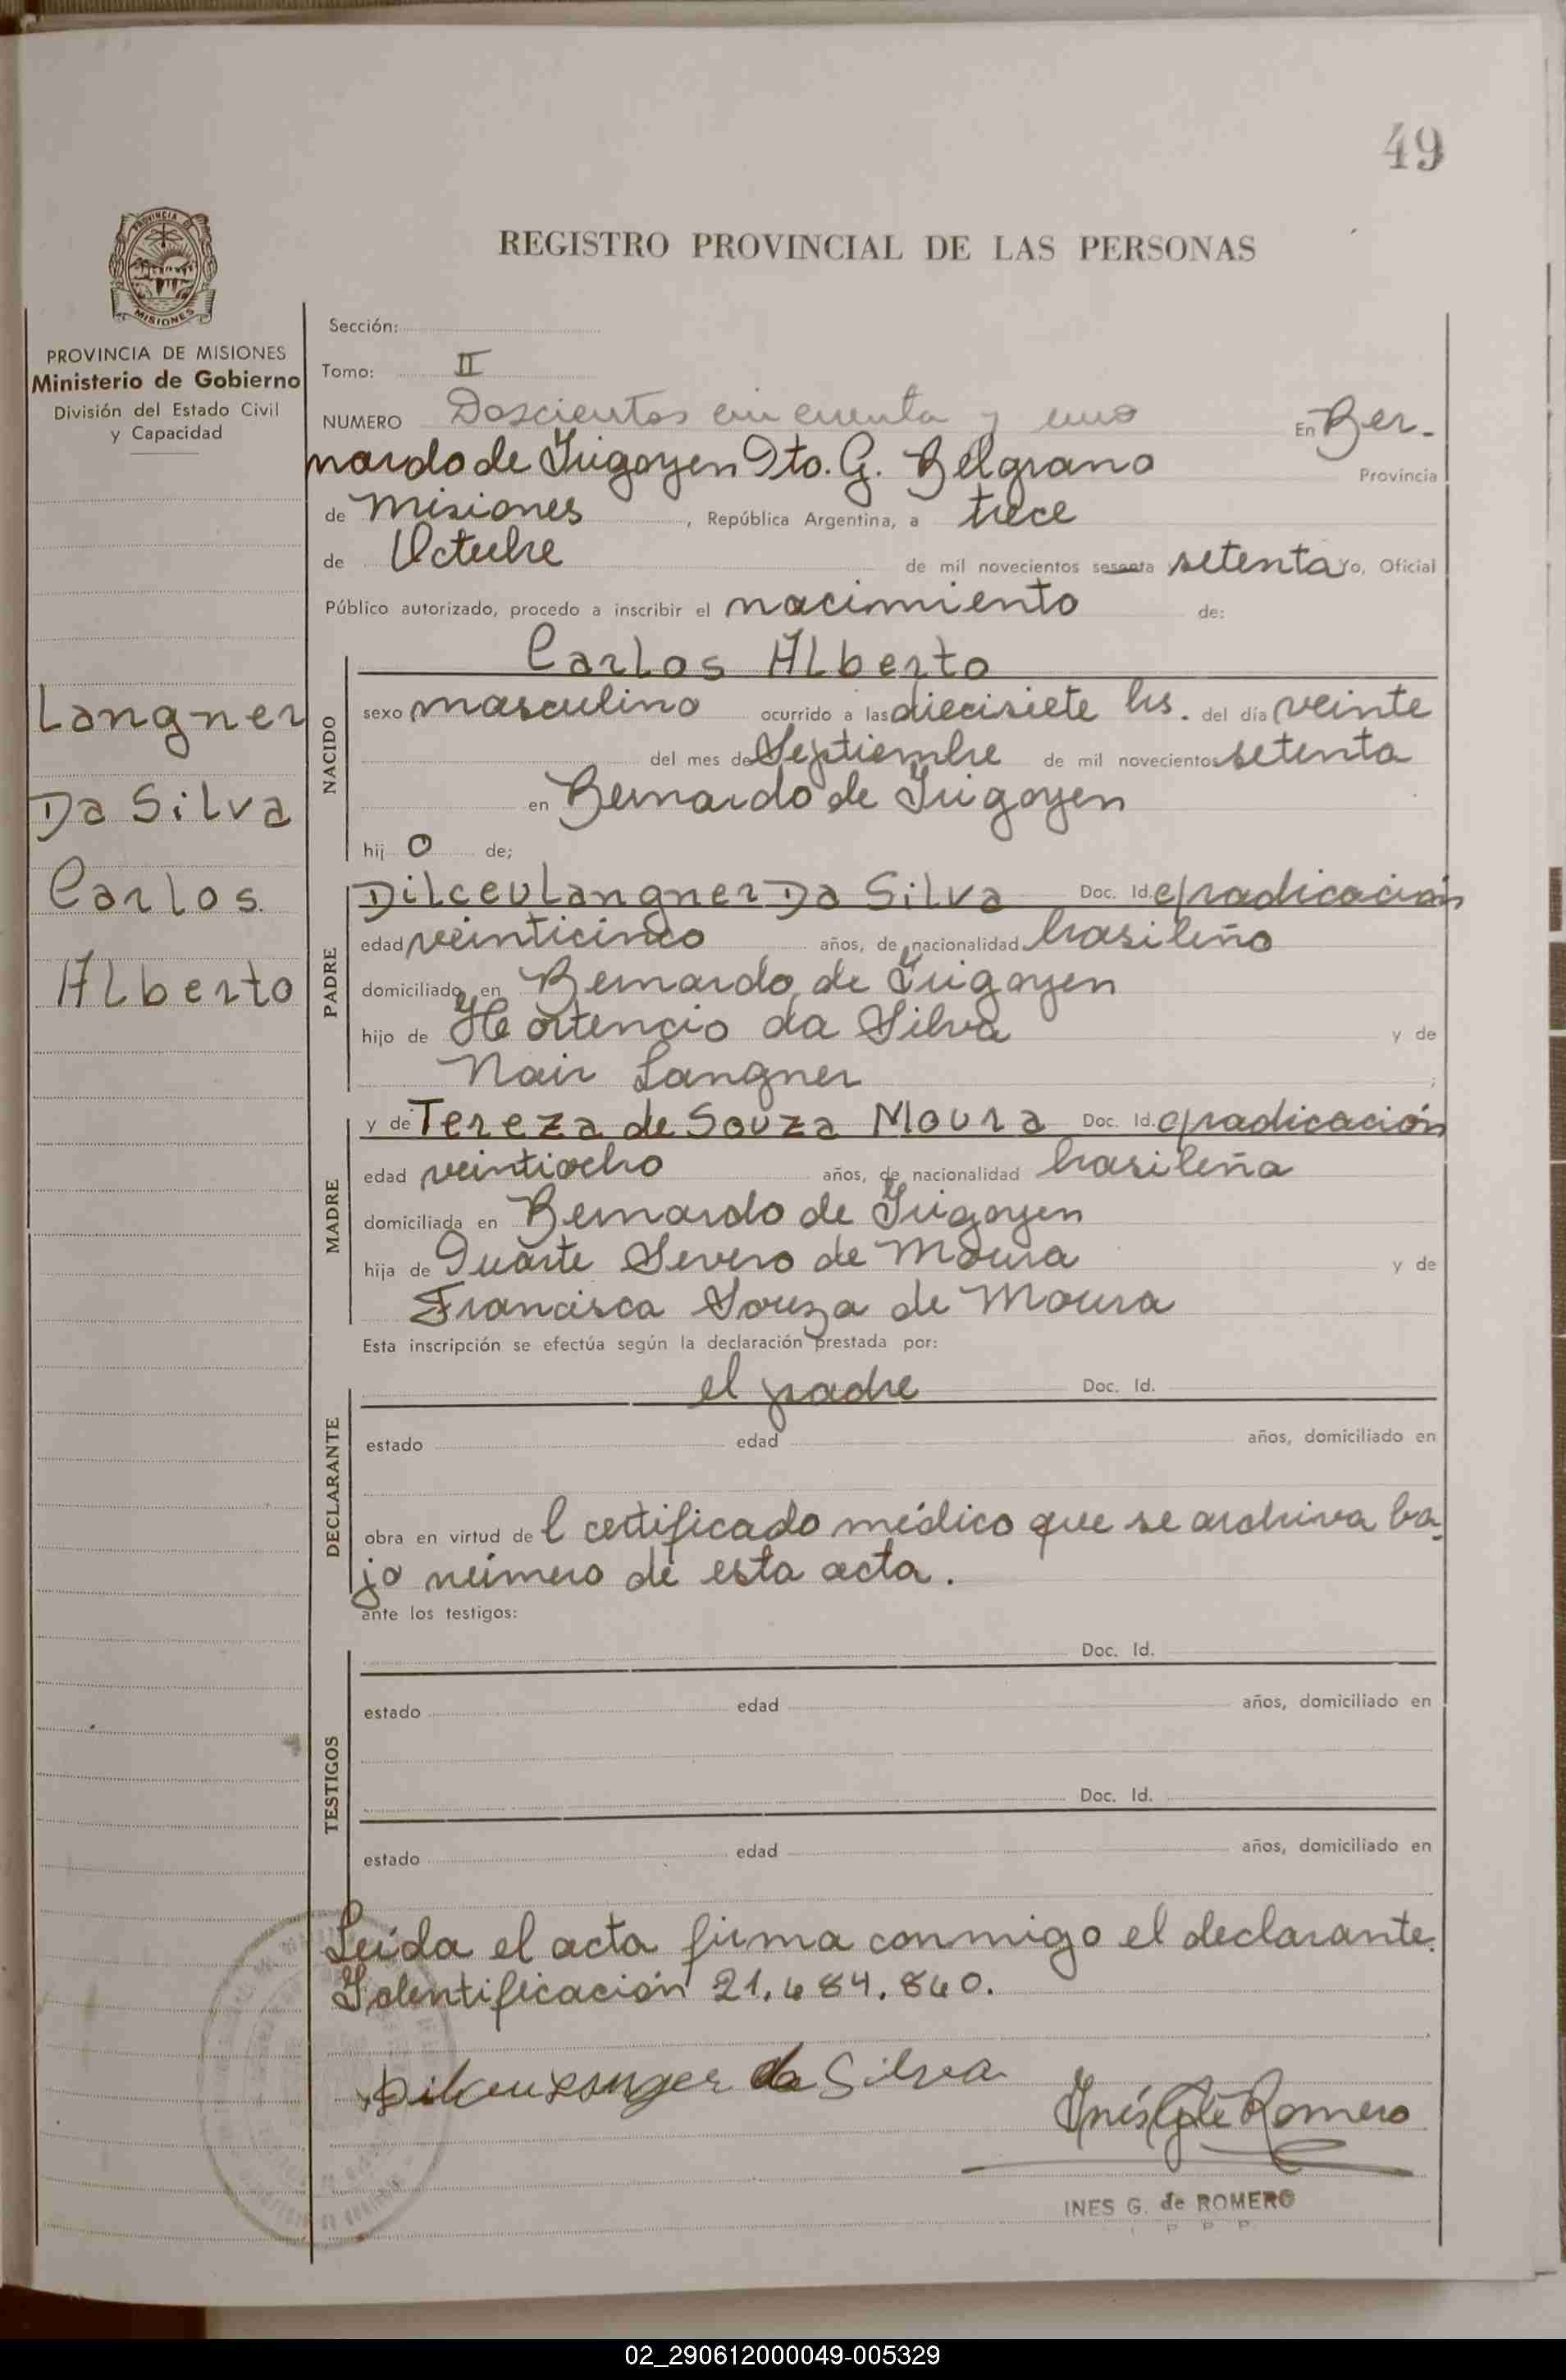 49
PROVINCIA DE
MISIONES
REGISTRO PROVINCIAL DE LAS PERSONAS
PROVINCIA DE MISIONES
Ministerio de Gobierno
División del Estado Civil
y Capacidad
Langner
Da Silva
Carlos
Alberto
Sección:
Tomo: II
NUMERO Doscientos cincuenta y uno En Ber-
nardo de Irigoyen Dto. G. Belgrano Provincia
de Misiones, República Argentina, a trece
de Octubre de mil novecientos sesenta setenta Yo, Oficial
Público autorizado, procedo a inscribir el nacimiento de:
NACIDO
Carlos Alberto
sexo masculino ocurrido a las diecisiete hs. del día veinte
del mes de Septiembre de mil novecientos setenta
en Bernardo de Irigoyen
hij o de;
PADRE
Dilceu Langner Da Silva Doc. Id. e/radicación
edad veinticinco años, de nacionalidad brasileño
domiciliado en Bernardo de Irigoyen
hijo de Hortencio da Silva y de
Nair Langner ;
MADRE
y de Tereza de Souza Moura Doc. Id. e/radicación
edad veintiocho años, de nacionalidad brasileña
domiciliada en Bernardo de Irigoyen
hija de Duarte Severo de Moura y de
Francisca Souza de Moura
Esta inscripción se efectúa según la declaración prestada por:
DECLARANTE
el padre Doc. Id.
estado edad años, domiciliado en
obra en virtud de l certificado médico que se archiva ba-
jo número de esta acta.
ante los testigos:
TESTIGOS
Doc. Id.
estado edad años, domiciliado en
Doc. Id.
estado edad años, domiciliado en
Leída el acta firma conmigo el declarante.
Identificación 21.684.860.
Dilceu Langner da Silva
Inés G de Romero
INES G. de ROMERO
02_290612000049-005329